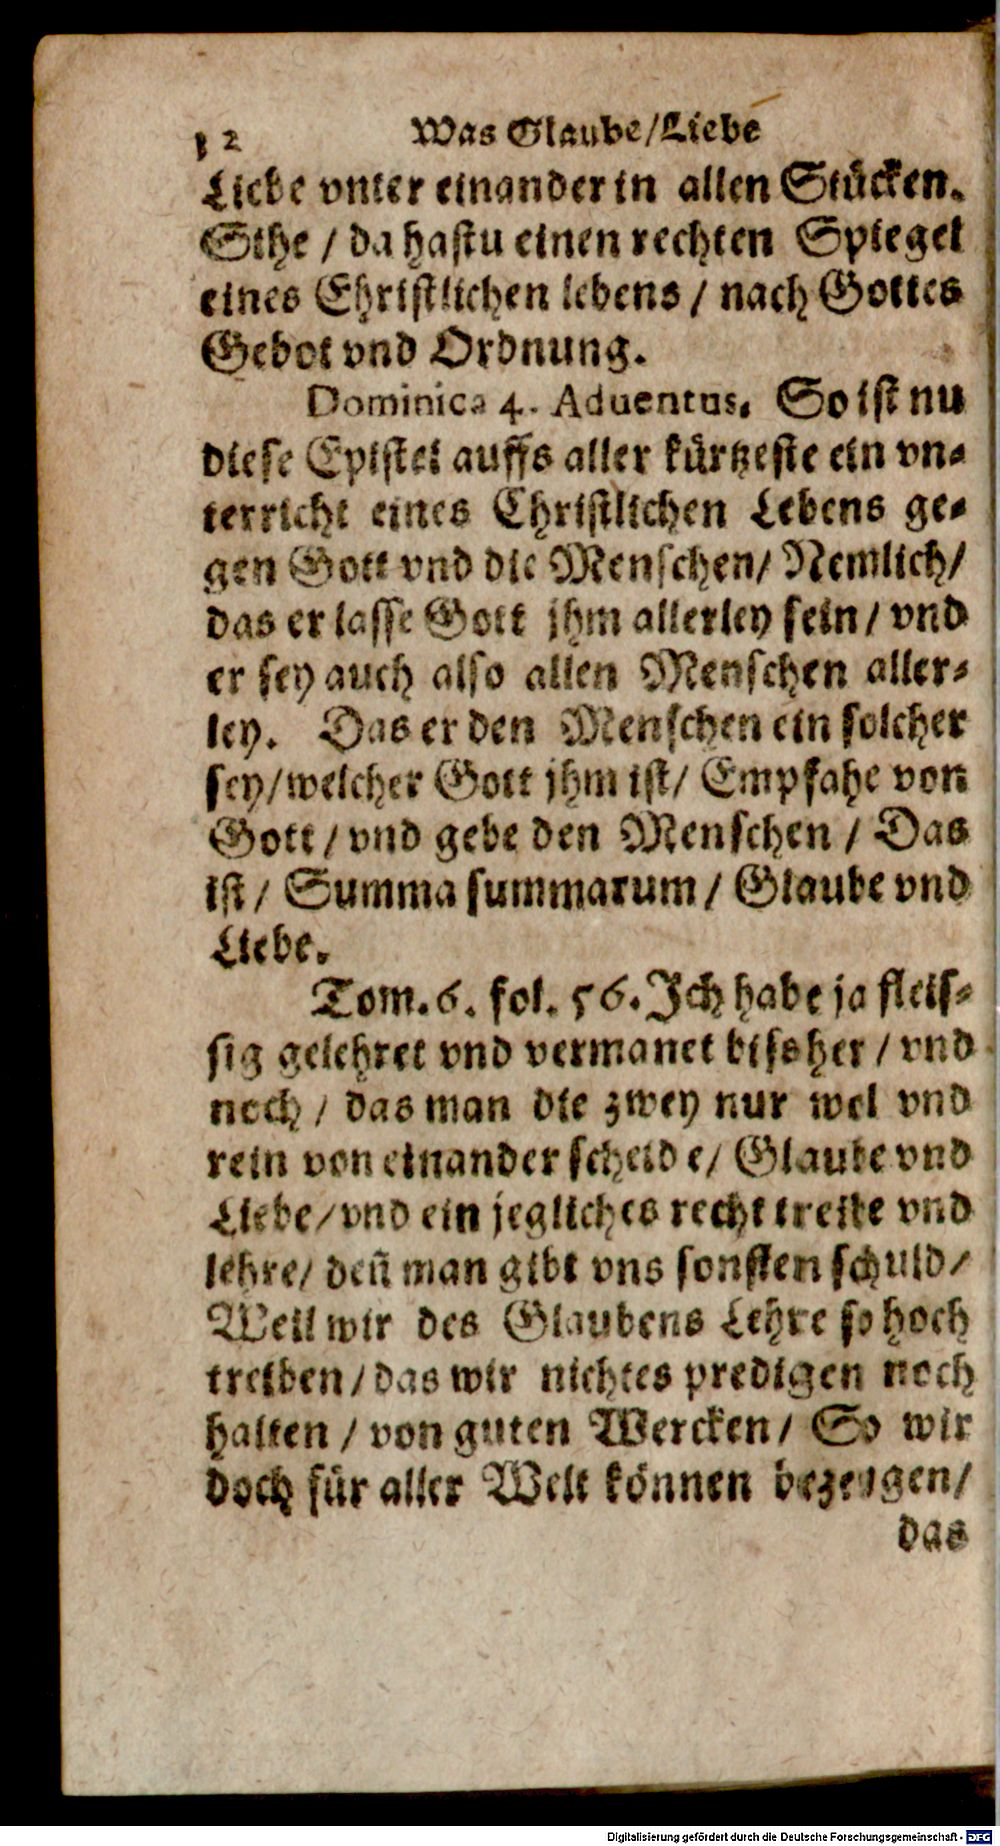 12 Was Glaube/Liebe
Liebe vnter einander in allen Stücken.
Sihe / da hastu einen rechten Spiegel
eines Christlichen lebens / nach Gottes
Gebot vnd Ordnung.
Dominica 4. Aduentus. So ist nu
diese Epistel auffs aller kürtzeste ein vn-
terricht eines Christlichen Lebens ge-
gen Gott vnd die Menschen/ Nemlich/
das er lasse Gott jhm allerley sein/ vnd
er sey auch also allen Menschen aller-
ley. Das er den Menschen ein solcher
sey/welcher Gott jhm ist/ Empfahe von
Gott/ vnd gebe den Menschen / Das
ist/ Summa summarum/ Glaube vnd
Liebe.
Tom. 6. fol. 56. Ich habe ja fleis-
sig gelehret vnd vermanet bissher / vnd
noch / das man die zwey nur wol vnd
rein von einander scheide/ Glaube vnd
Liebe/vnd ein jegliches recht treibe vnd
lehre/ deñ man gibt vns sonsten schuld/
Weil wir des Glaubens Lehre so hoch
treiben/das wir nichtes predigen noch
halten / von guten Wercken/ So wir
doch für aller Welt können bezeugen/
das
Digitalisierung gefördert durch die Deutsche Forschungsgemeinschaft - DFG